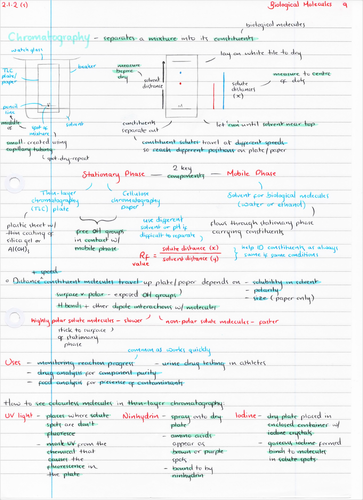 2.1.2 (i)
Biological Molecules 9
biological molecules
Chromatography - separates a mixture into its constituents
watch glass
lay on white tile to dry
TLC plate/paper
beaker
measure before dry
solvent distance
solute distances (x)
measure to centre of dots
pencil line
middle of spot of mixture
solvent
constituents separate out
let run until solvent near top
small: created using capillary tubing
spot-dry-repeat
constituent solutes travel at different speeds
so reach different positions on plate/paper
Stationary Phase — 2 key components — Mobile Phase
Thin-layer chromatography (TLC) plate
Cellulose chromatography paper
Solvent for biological molecules (water or ethanol)
plastic sheet w/ thin coating of silica gel or Al(OH)3
free OH groups in contact w/ mobile phase
use different solvent or pH is difficult to separate
flows through stationary phase carrying constituents
Rf value = solute distance (x) / solvent distance (y)
help ID constituents as always same if same conditions
+ speed
Distance constituent molecules travel up plate/paper depends on - solubility in solvent
- polarity
- size (paper only)
surface = polar - exposed OH groups
H bonds + other dipole interactions w/ molecules
Highly polar solute molecules - slower
non-polar solute molecules - faster
stick to surface of stationary phase
commercial works quickly
Uses - monitoring reaction progress
- urine drug testing in athletes
- drug analysis for component purity
- food analysis for presence of contaminants
How to see colourless molecules in thin-layer chromatography:
UV light - places where solute spots are don't fluoresce
- mask UV from the chemical that causes the fluorescence in the plate
Ninhydrin - spray onto dry plate
- amino acids appear as brown or purple spots
- bound to by ninhydrin
Iodine - dry plate placed in enclosed container w/ iodine crystals
- gaseous iodine formed binds to molecules in solute spots